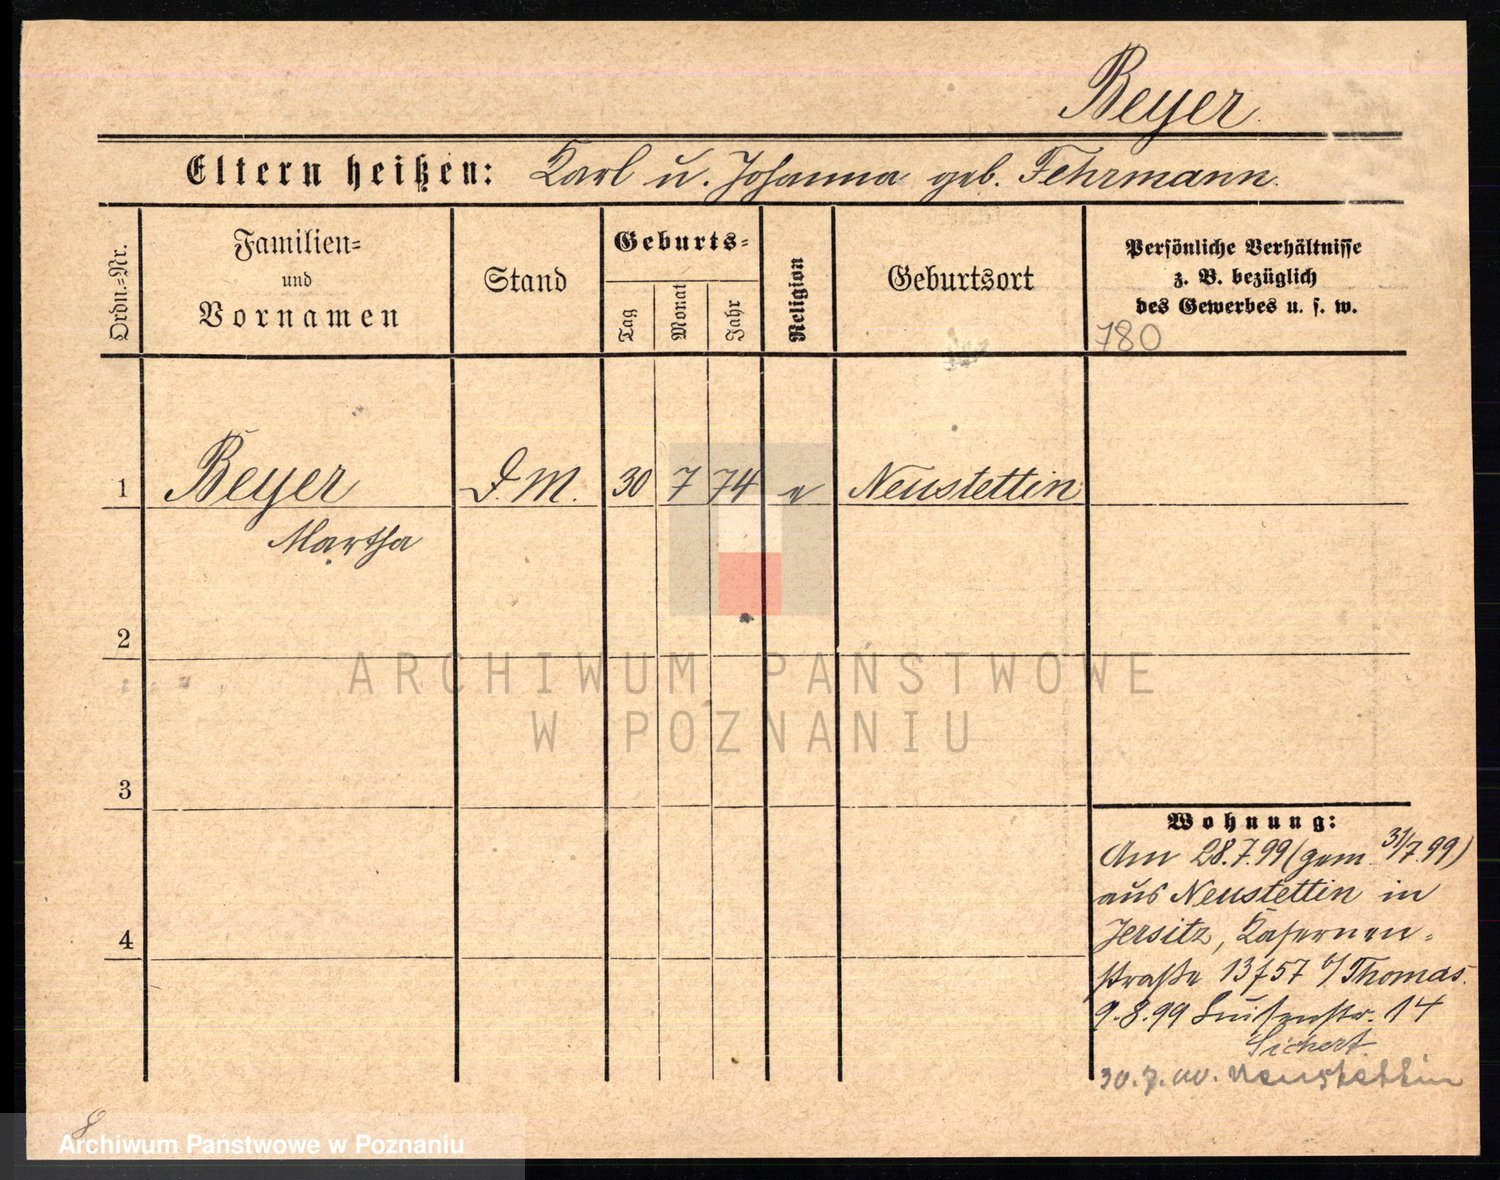 Beyer
Eltern heißen: Karl u. Johanna geb. Fehrmann.
Ordn.=Nr.
Familien=
und
Vornamen
Stand
Geburts=
Tag
Monat
Jahr
Religion
Geburtsort
Persönliche Verhältnisse
z. B. bezüglich
des Gewerbes u. s. w.
780
1 Beyer D.M. 30 7 74 e Neustettin
Martha
2
3
4
Wohnung:
Am 28.7.99 (gem 31/7.99)
aus Neustettin in
Jersitz, Kasernen=
straße 13/57 b/ Thomas.
9.8.99 Luisenstr. 14
Sichert
30.7.00. Neustettin
8
ARCHIWUM PAŃSTWOWE
W POZNANIU
Archiwum Państwowe w Poznaniu